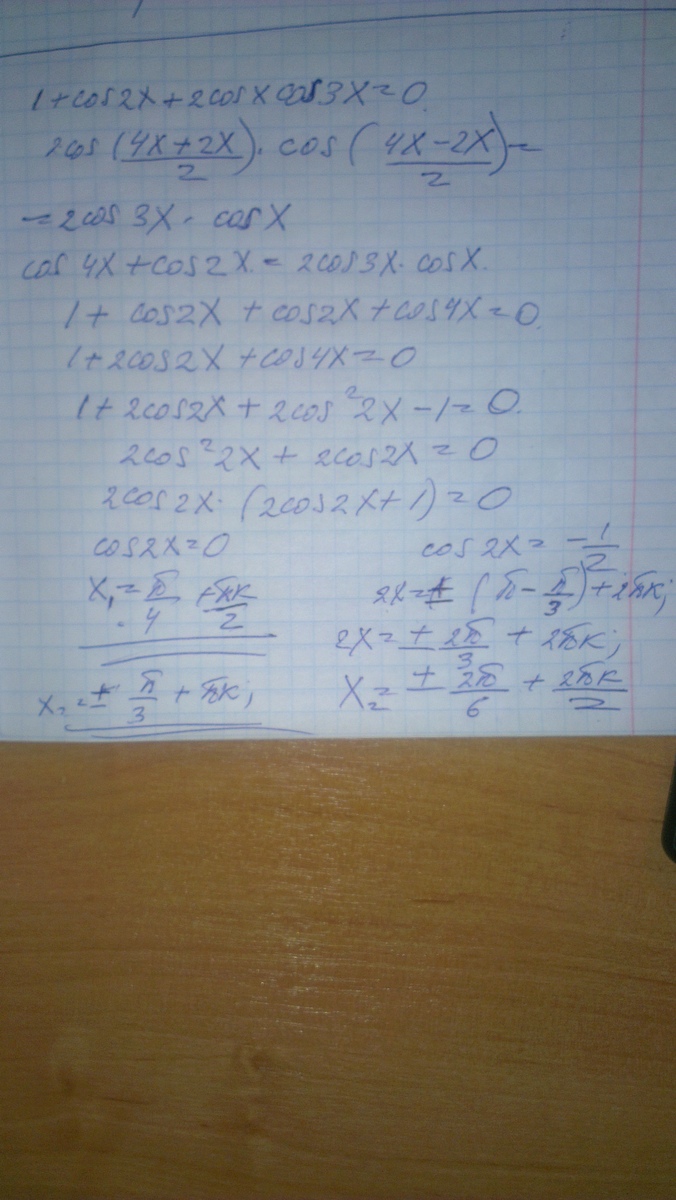 1+cos2x+2cosx cos3x=0.
2cos (4x+2x)/2 · cos (4x-2x)/2 =
= 2cos 3x · cosx
cos 4x + cos 2x = 2cos3x · cosx.
1 + cos2x + cos2x + cos4x = 0.
1+2cos2x + cos4x = 0
1 + 2cos2x + 2cos²2x - 1 = 0.
2cos²2x + 2cos2x = 0
2cos2x · (2cos2x+1) = 0
cos2x=0 cos 2x = -1/2
x₁ = π/4 + πк/2 2x = ± (π - π/3) + 2πк;
2x = ± 2π/3 + 2πк;
x₂ = ± π/3 + πк; x₂ = ± 2π/6 + 2πк/2